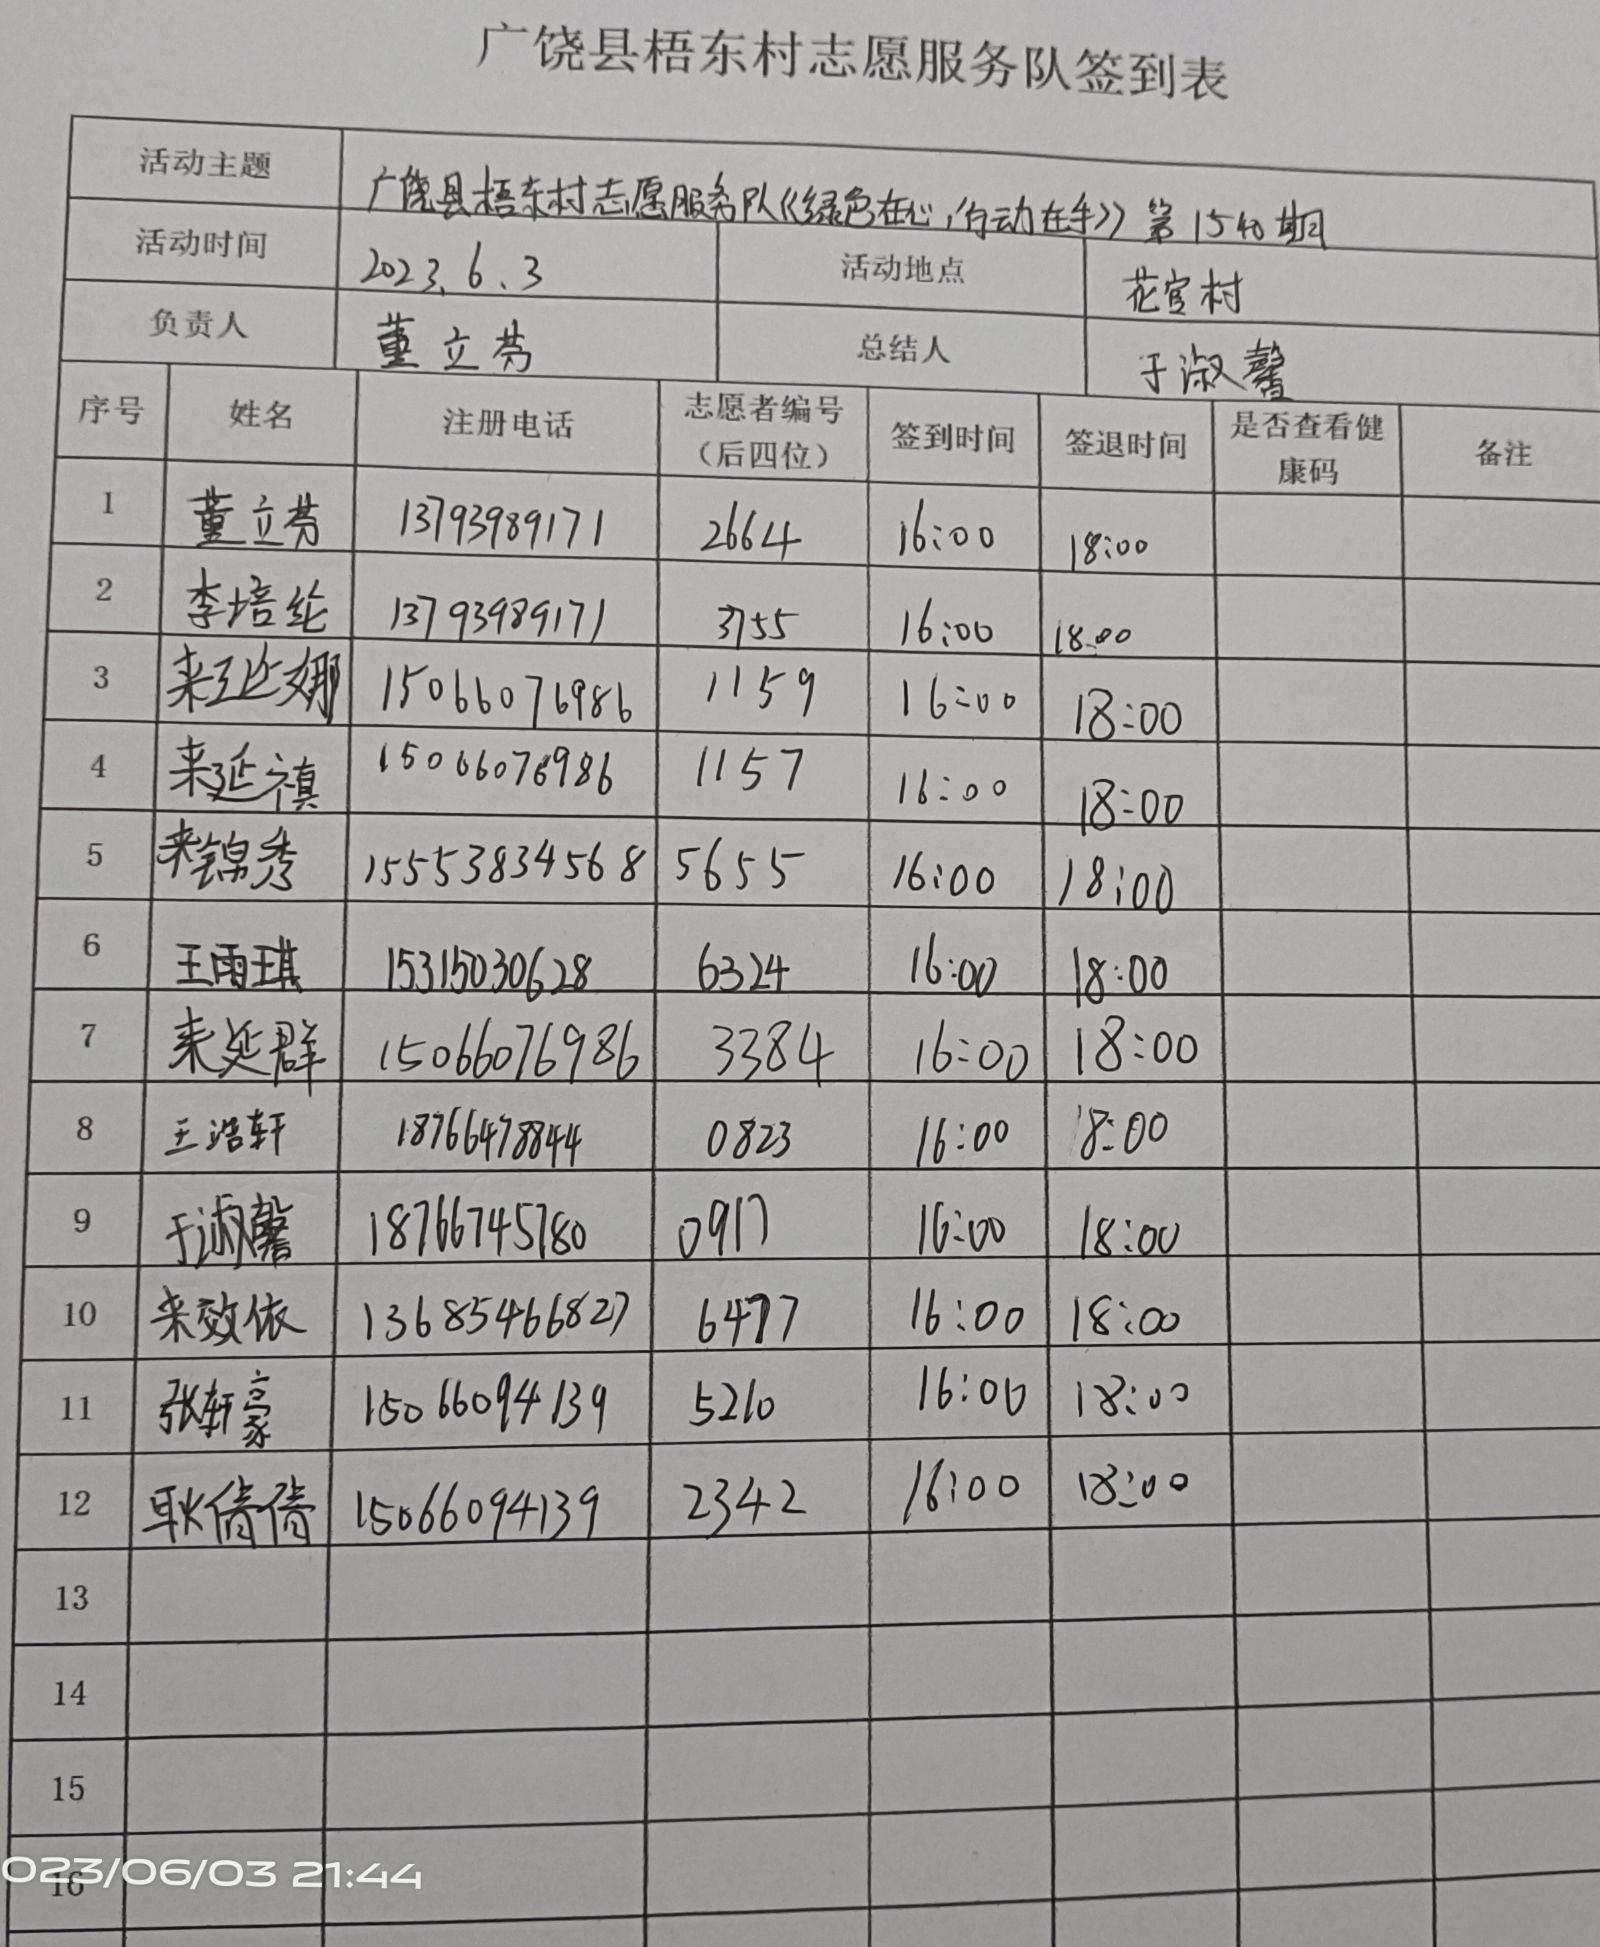 广饶县梧东村志愿服务队签到表
活动主题 广饶县梧东村志愿服务队《绿色在心,行动在手》第1540期
活动时间 2023.6.3 活动地点 花官村
负责人 董立芬 总结人 于淑馨
序号 姓名 注册电话 志愿者编号（后四位） 签到时间 签退时间 是否查看健康码 备注
1 董立芬 13793989171 2664 16:00 18:00
2 李培纶 13793989171 3755 16:00 18:00
3 来延娜 15066076986 1159 16:00 18:00
4 来延禛 15066076986 1157 16:00 18:00
5 来锦秀 15553834568 5655 16:00 18:00
6 王雨琪 15315030628 6324 16:00 18:00
7 来延群 15066076986 3384 16:00 18:00
8 王浩轩 18766478844 0823 16:00 18:00
9 于淑馨 18766745780 0917 16:00 18:00
10 来效依 13685466827 6477 16:00 18:00
11 张轩豪 15066094139 5210 16:00 18:00
12 耿倩倩 15066094139 2342 16:00 18:00
13
14
15
16
023/06/03 21:44